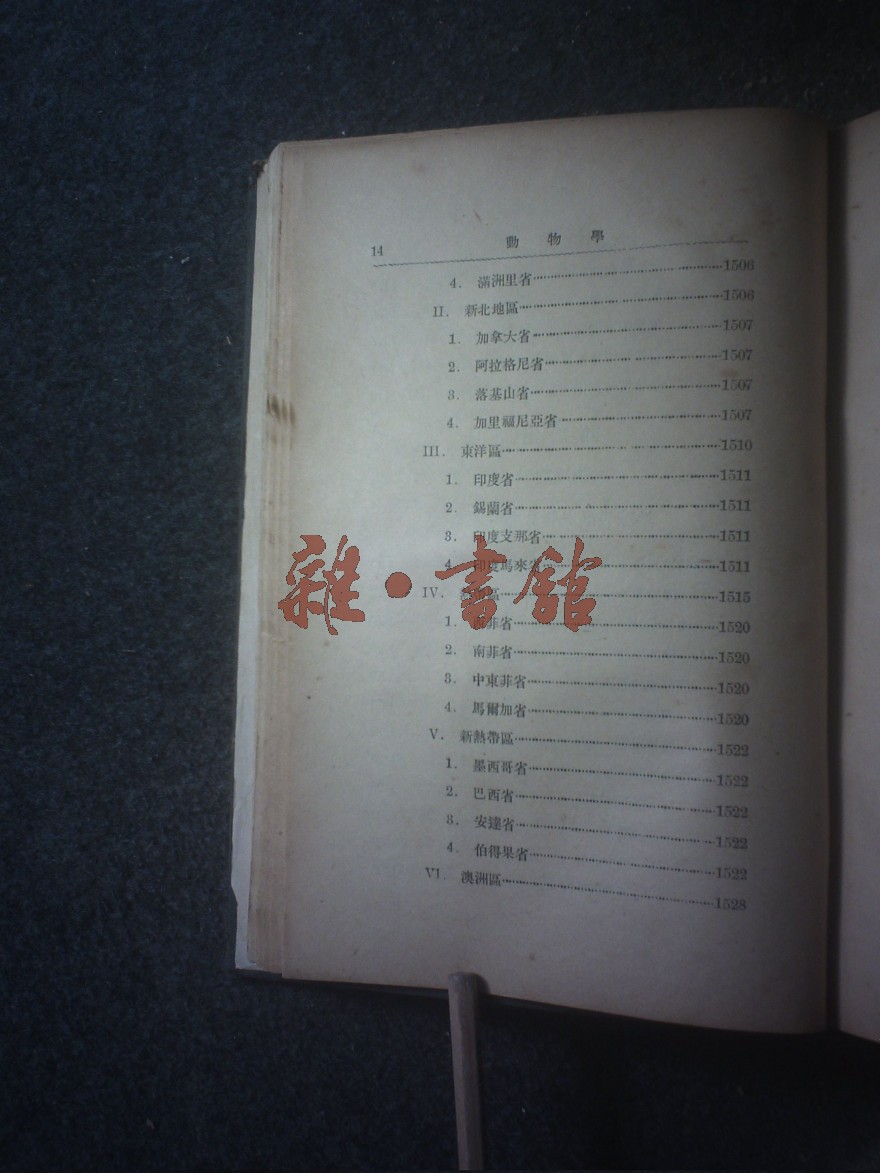 14 動物學
4. 滿洲里省 1506
II. 新北地區 1506
1. 加拿大省 1507
2. 阿拉格尼省 1507
3. 落基山省 1507
4. 加里福尼亞省 1507
III. 東洋區 1510
1. 印度省 1511
2. 錫蘭省 1511
3. 印度支那省 1511
4. 印度馬來省 1511
IV. 區 1515
1. 菲省 1520
2. 南菲省 1520
3. 中東菲省 1520
4. 馬爾加省 1520
V. 新熱帶區 1522
1. 墨西哥省 1522
2. 巴西省 1522
3. 安達省 1522
4. 伯得果省 1522
VI. 澳洲區 1528
雜·書館